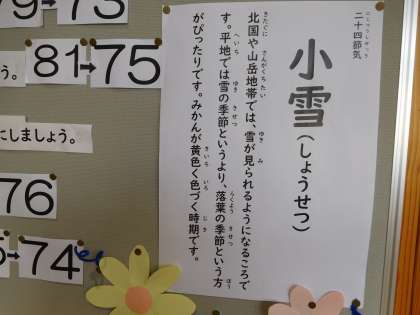 二十四節気
小雪(しょうせつ)
北国や山岳地帯では、雪が見られるようになるころで
す。平地では雪の季節というより、落葉の季節という方
がぴったりです。みかんが黄色く色づく時期です。
→73
う。
81→75
にしましょう。
76
→74